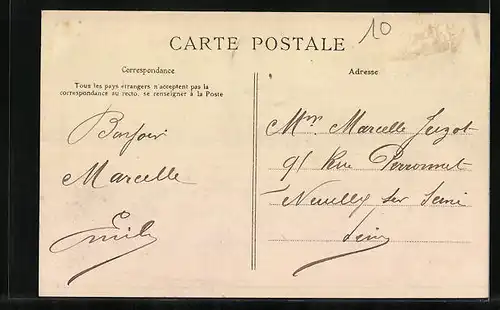 10
CARTE POSTALE
Correspondance
Tous les pays étrangers n'acceptent pas la
correspondance au recto, se renseigner à la Poste
Bonjour
Marcelle
Emile
Adresse
Marcelle
91 Rue Perronnet
Neuilly sur Seine
Seine